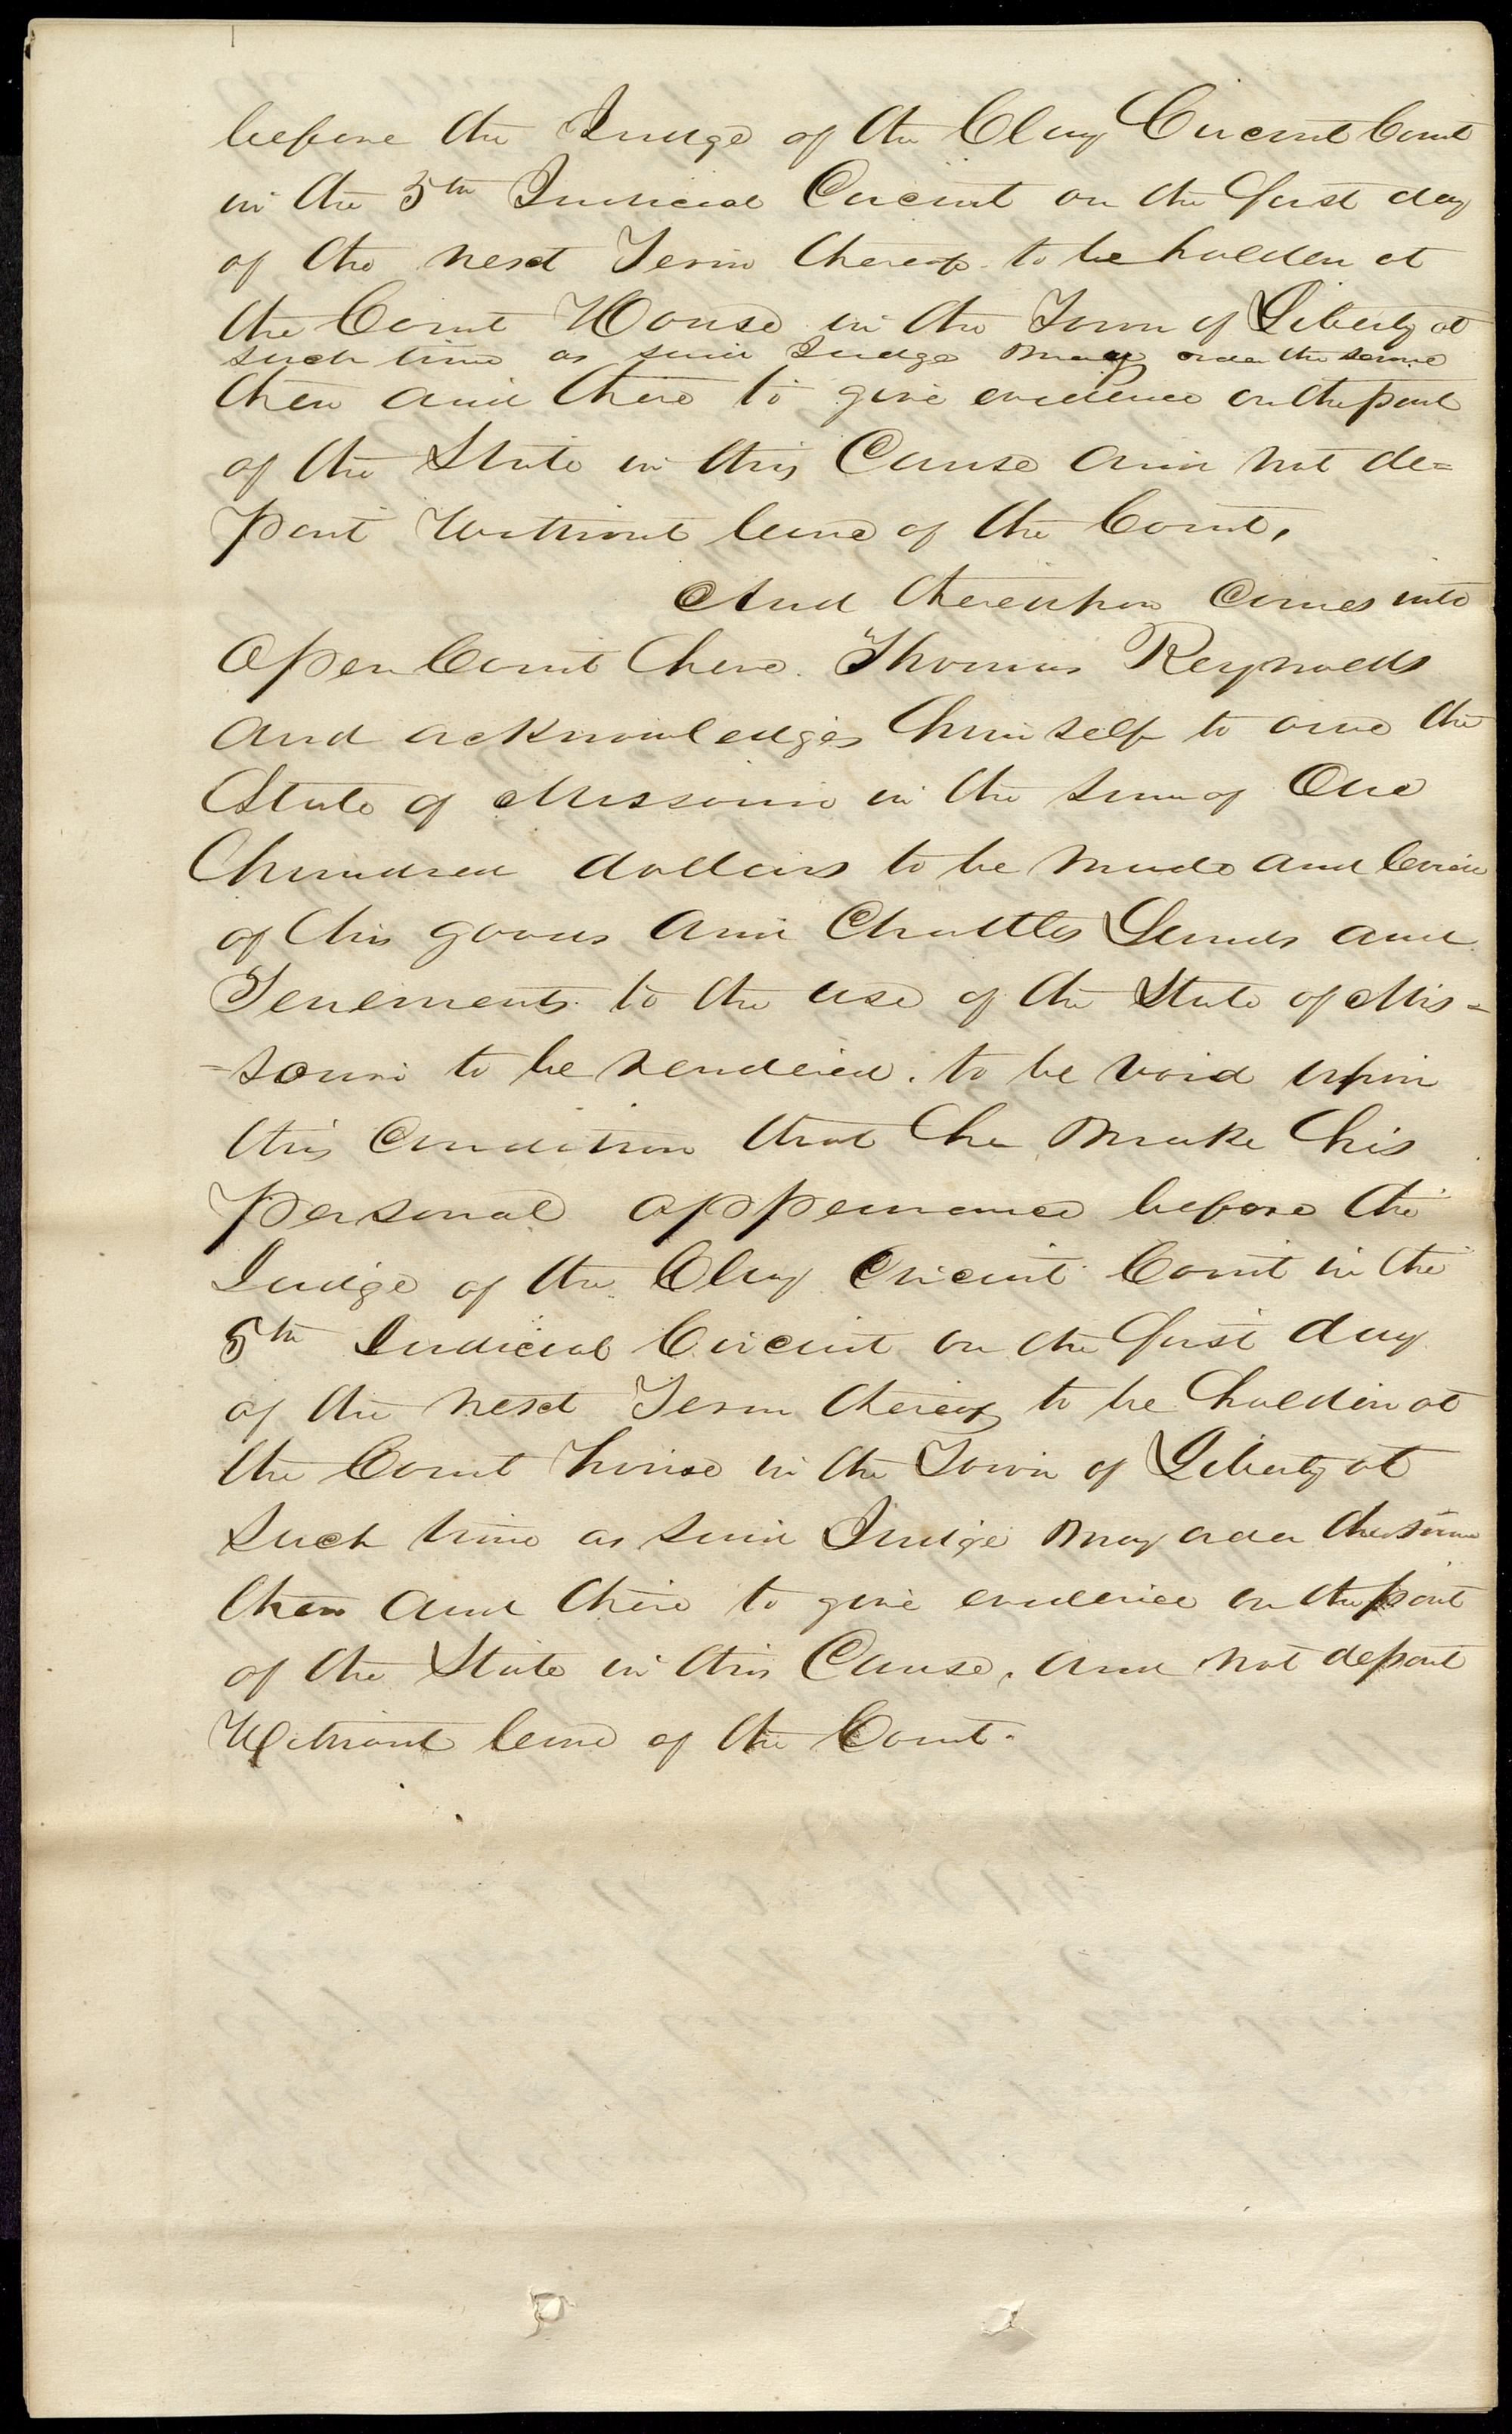 before the Judge of the Clay Circuit Court
in the 5th Judicial Circuit on the first day
of the next Term thereof to be holden at
the Court House in the Town of Liberty at
such time as said Judge may order the same
then and there to give evidence on the part
of the State in this Cause and not de=
part without leave of the Court,
And thereupon comes into
Open Court here Thomas Reynolds
and acknowledges himself to owe the
State of Missouri in the sum of One
hundred dollars to be made and levied
of his goods and Chattles Lands and
Tenements to the use of the State of Mis=
=souri to be rendered. to be void upon
this Condition that he make his
personal appearance before the
Judge of the Clay Circuit Court in the
5th Judicial Circuit on the first day
of the next Term thereof to be holden at
the Court house in the Town of Liberty at
Such time as said Judge may order the same
then and there to give evidence on the part
of the State in this Cause, and not depart
Without leave of the Court.